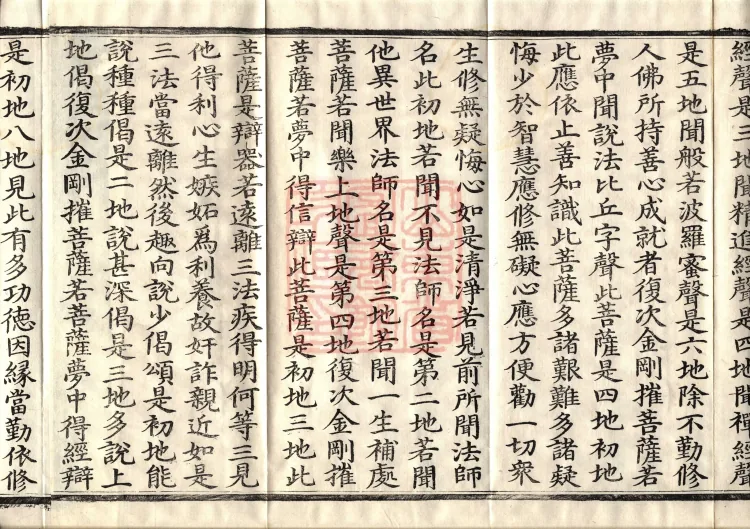 經聲是三地聞精進經聲是四地聞禪經聲
是五地聞般若波羅蜜聲是六地除不勤修
人佛所持善心成就者復次金剛摧菩薩若
夢中聞說法比丘字聲此菩薩是四地初地
此應依止善知識此菩薩多諸艱難多諸疑
悔少於智慧應修無礙心應方便勸一切衆
生修無疑悔心如是清淨若見前所聞法師
名此初地若聞不見法師名是第二地若聞
他異世界法師名是第三地若聞一生補處
菩薩若聞樂上地聲是第四地復次金剛摧
菩薩若夢中得信辯此菩薩是初地三地此
菩薩是辯器若遠離三法疾得明何等三見
他得利心生嫉妬爲利養故奸詐親近如是
三法當遠離然後趣向說少偈頌是初地能
說種種偈是二地說甚深偈是三地多說上
地偈復次金剛摧菩薩若菩薩夢中得經辯
是初地八地見此有多功德因緣當勤依修